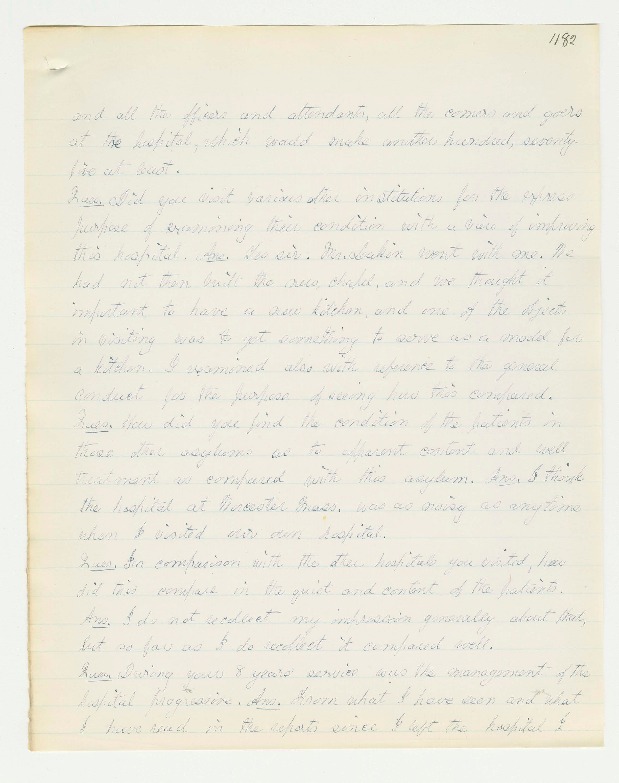 1182
and all the officers and attendants, all the comers and goers
at the hospital, which would make another hundred, seventy-
five at least.
Ques. Did you visit various other institutions for the express
purpose of examining their condition with a view of improving
this hospital. Ans. Yes sir. went with me. We
had not then built the new chapel, and we thought it
important to have a new kitchen, and one of the objects
in visiting was to get something to serve as a model for
a kitchen. I examined also with reference to the general
conduct for the purpose of seeing how this compared.
Ques. How did you find the condition of the patients in
these other asylums as to apparent content and well
treatment as compared with this asylum. Ans. I think
the hospital at Worcester Mass. was as noisy as anytime
when I visited our own hospital.
Ques. In comparison with the other hospitals you visited, how
did this compare in the quiet and content of the patients.
Ans. I do not recollect my impression generally about that,
but so far as I do recollect it compared well.
Ques. During your 8 years service was the management of the
hospital progressive. Ans. From what I have seen and what
I have read in the reports since I left the hospital I